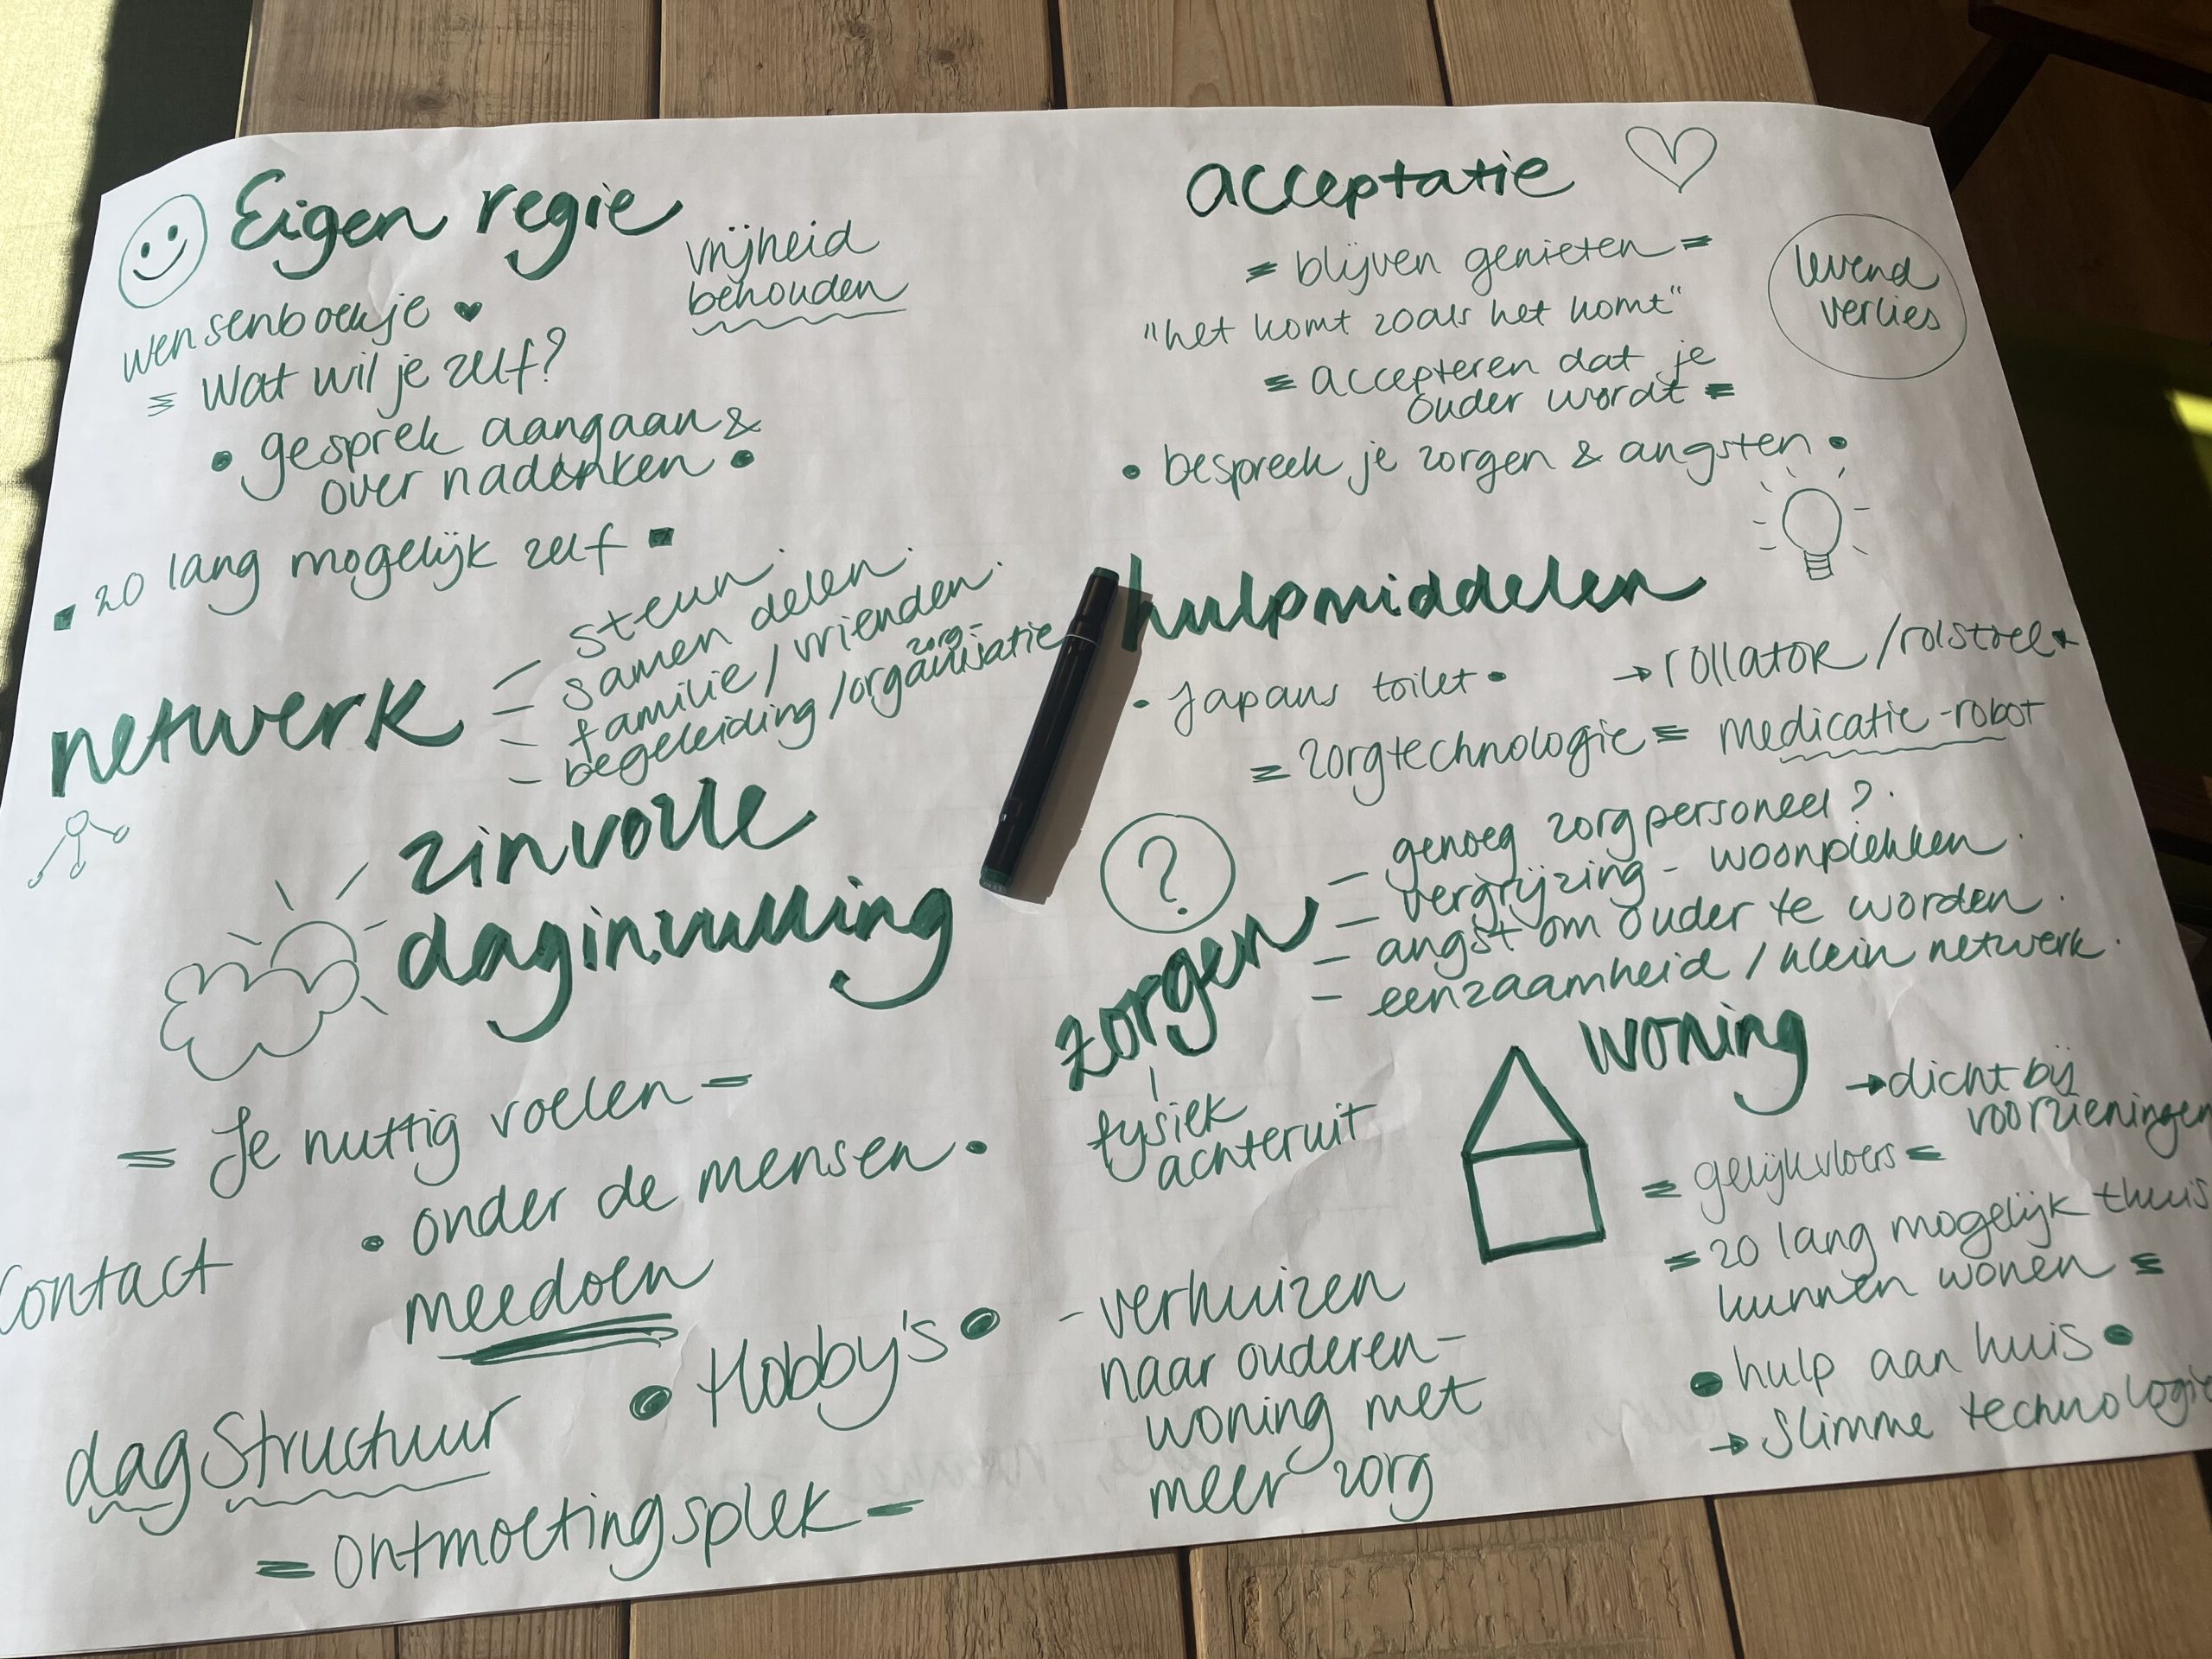 Eigen regie
vrijheid
behouden
wensenboekje
Wat wil je zelf?
gesprek aangaan &
over nadenken
zo lang mogelijk zelf
acceptatie
= blijven genieten =
"het komt zoals het komt"
= accepteren dat je
ouder wordt =
• bespreek je zorgen & angsten •
levend
verlies
netwerk
- steun
- samen delen
- familie / vrienden
zorg-
- begeleiding / organisatie
hulpmiddelen
• Japans toilet •
→ rollator / rolstoel
= zorgtechnologie =
medicatie-robot
zinvolle
daginvulling
= Je nuttig voelen =
• onder de mensen •
Contact
meedoen
• Hobby's •
dagstructuur
= ontmoetingsplek =
?
zorgen
- genoeg zorgpersoneel?
- vergrijzing - woonplekken
- angst om ouder te worden
- eenzaamheid / klein netwerk
fysiek
achteruit
woning
→ dichtbij
voorzieningen
= gelijkvloers =
= zo lang mogelijk thuis
kunnen wonen =
• hulp aan huis •
→ slimme technologie
- verhuizen
naar ouderen-
woning met
meer zorg